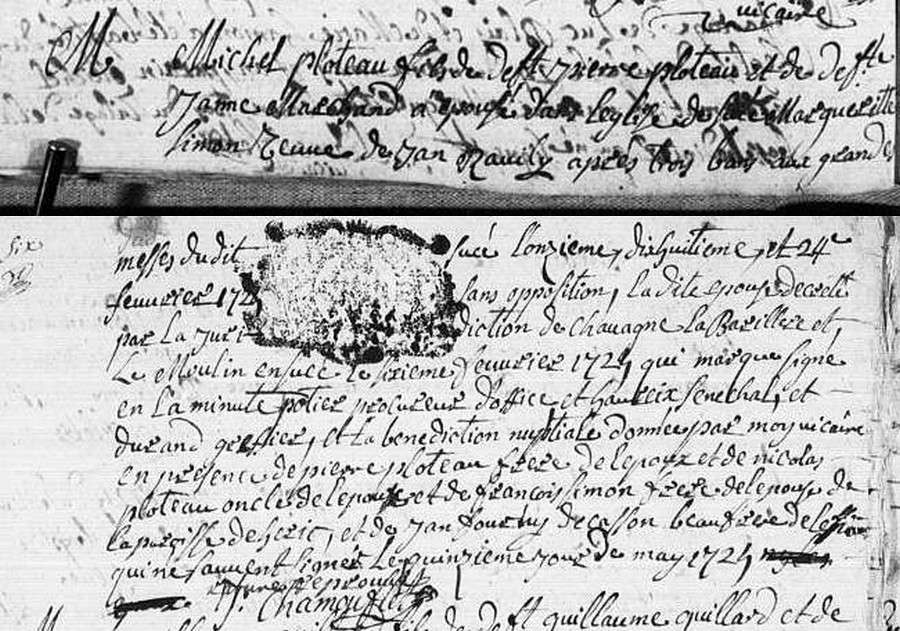 vicaire
M Michel ploteau fils de defft pierre ploteau et de deffte
Janne Marchand a epousé dans leglise de sucé Marguerite
simon veuve de Jan Rauily apres trois bans aux grandes
messes du dit sucé l'onzieme, dixhuitieme, et 24e
feuvrier 172 sans opposition, la dite epouse decreté
par la Juri diction de chavagne la Barillere et,
Le Moulin en sucé le sixieme feuvrier 1724 qui marque signé
en la minute potier procureur d'office et senechal, et
durand greffier, et la benediction nuptiale donnée par moy vicaire
en presence de pierre ploteau frere de lepoux et de nicolas
ploteau oncle de lepoux et de francois simon frere de lepouse de
la paroisse de heric, et de Jan de casson beaufrere de
qui ne sauvent signer Le quinzieme jour de may 1724
reprouvés
M fils de defft guillaume quillard et de